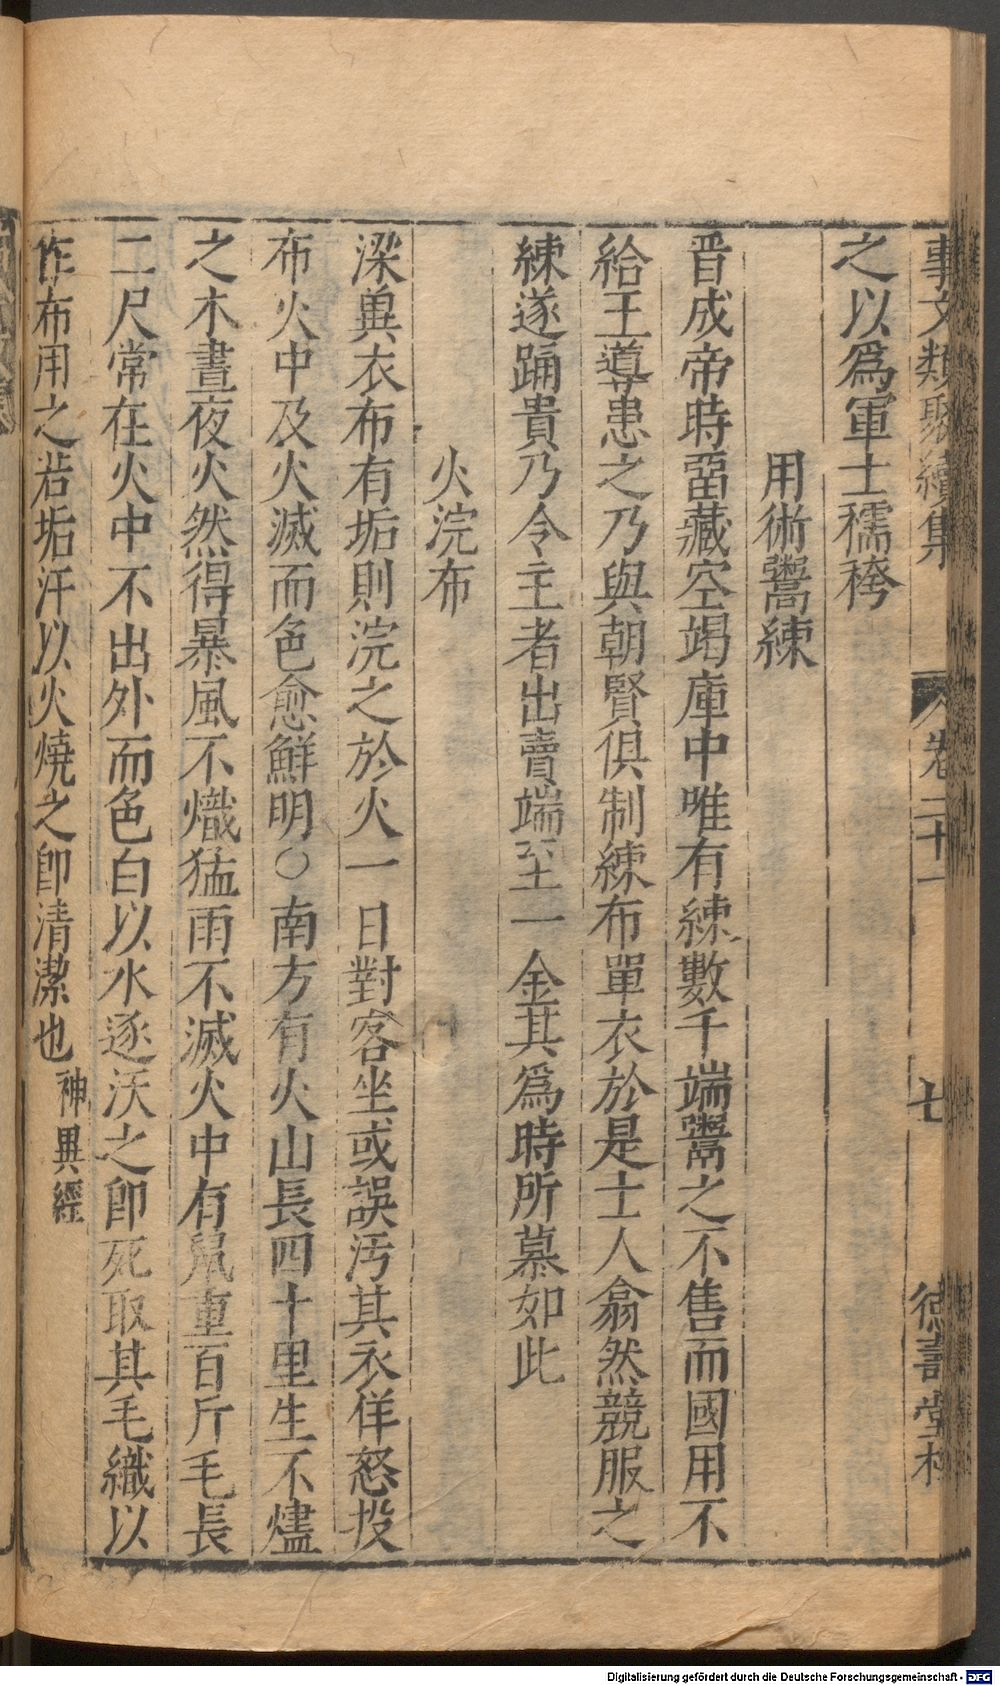 事文類聚續集 卷二十一 七 德壽堂梓
之以爲軍士襦袴
用術鬻練
晋成帝時帑藏空竭庫中唯有練數千端鬻之不售而國用不
給王導患之乃與朝賢俱制練布單衣於是士人翕然競服之
練遂踊貴乃令主者出賣端至一金其爲時所慕如此
火浣布
梁兾衣布有垢則浣之於火一日對客坐或誤汚其衣佯怒投
布火中及火滅而色愈鮮明〇南方有火山長四十里生不燼
之木晝夜火然得暴風不熾猛雨不滅火中有鼠重百斤毛長
二尺常在火中不出外而色白以水逐沃之卽死取其毛織以
作布用之若垢汗以火燒之卽清潔也神異經
Digitalisierung gefördert durch die Deutsche Forschungsgemeinschaft - DFG